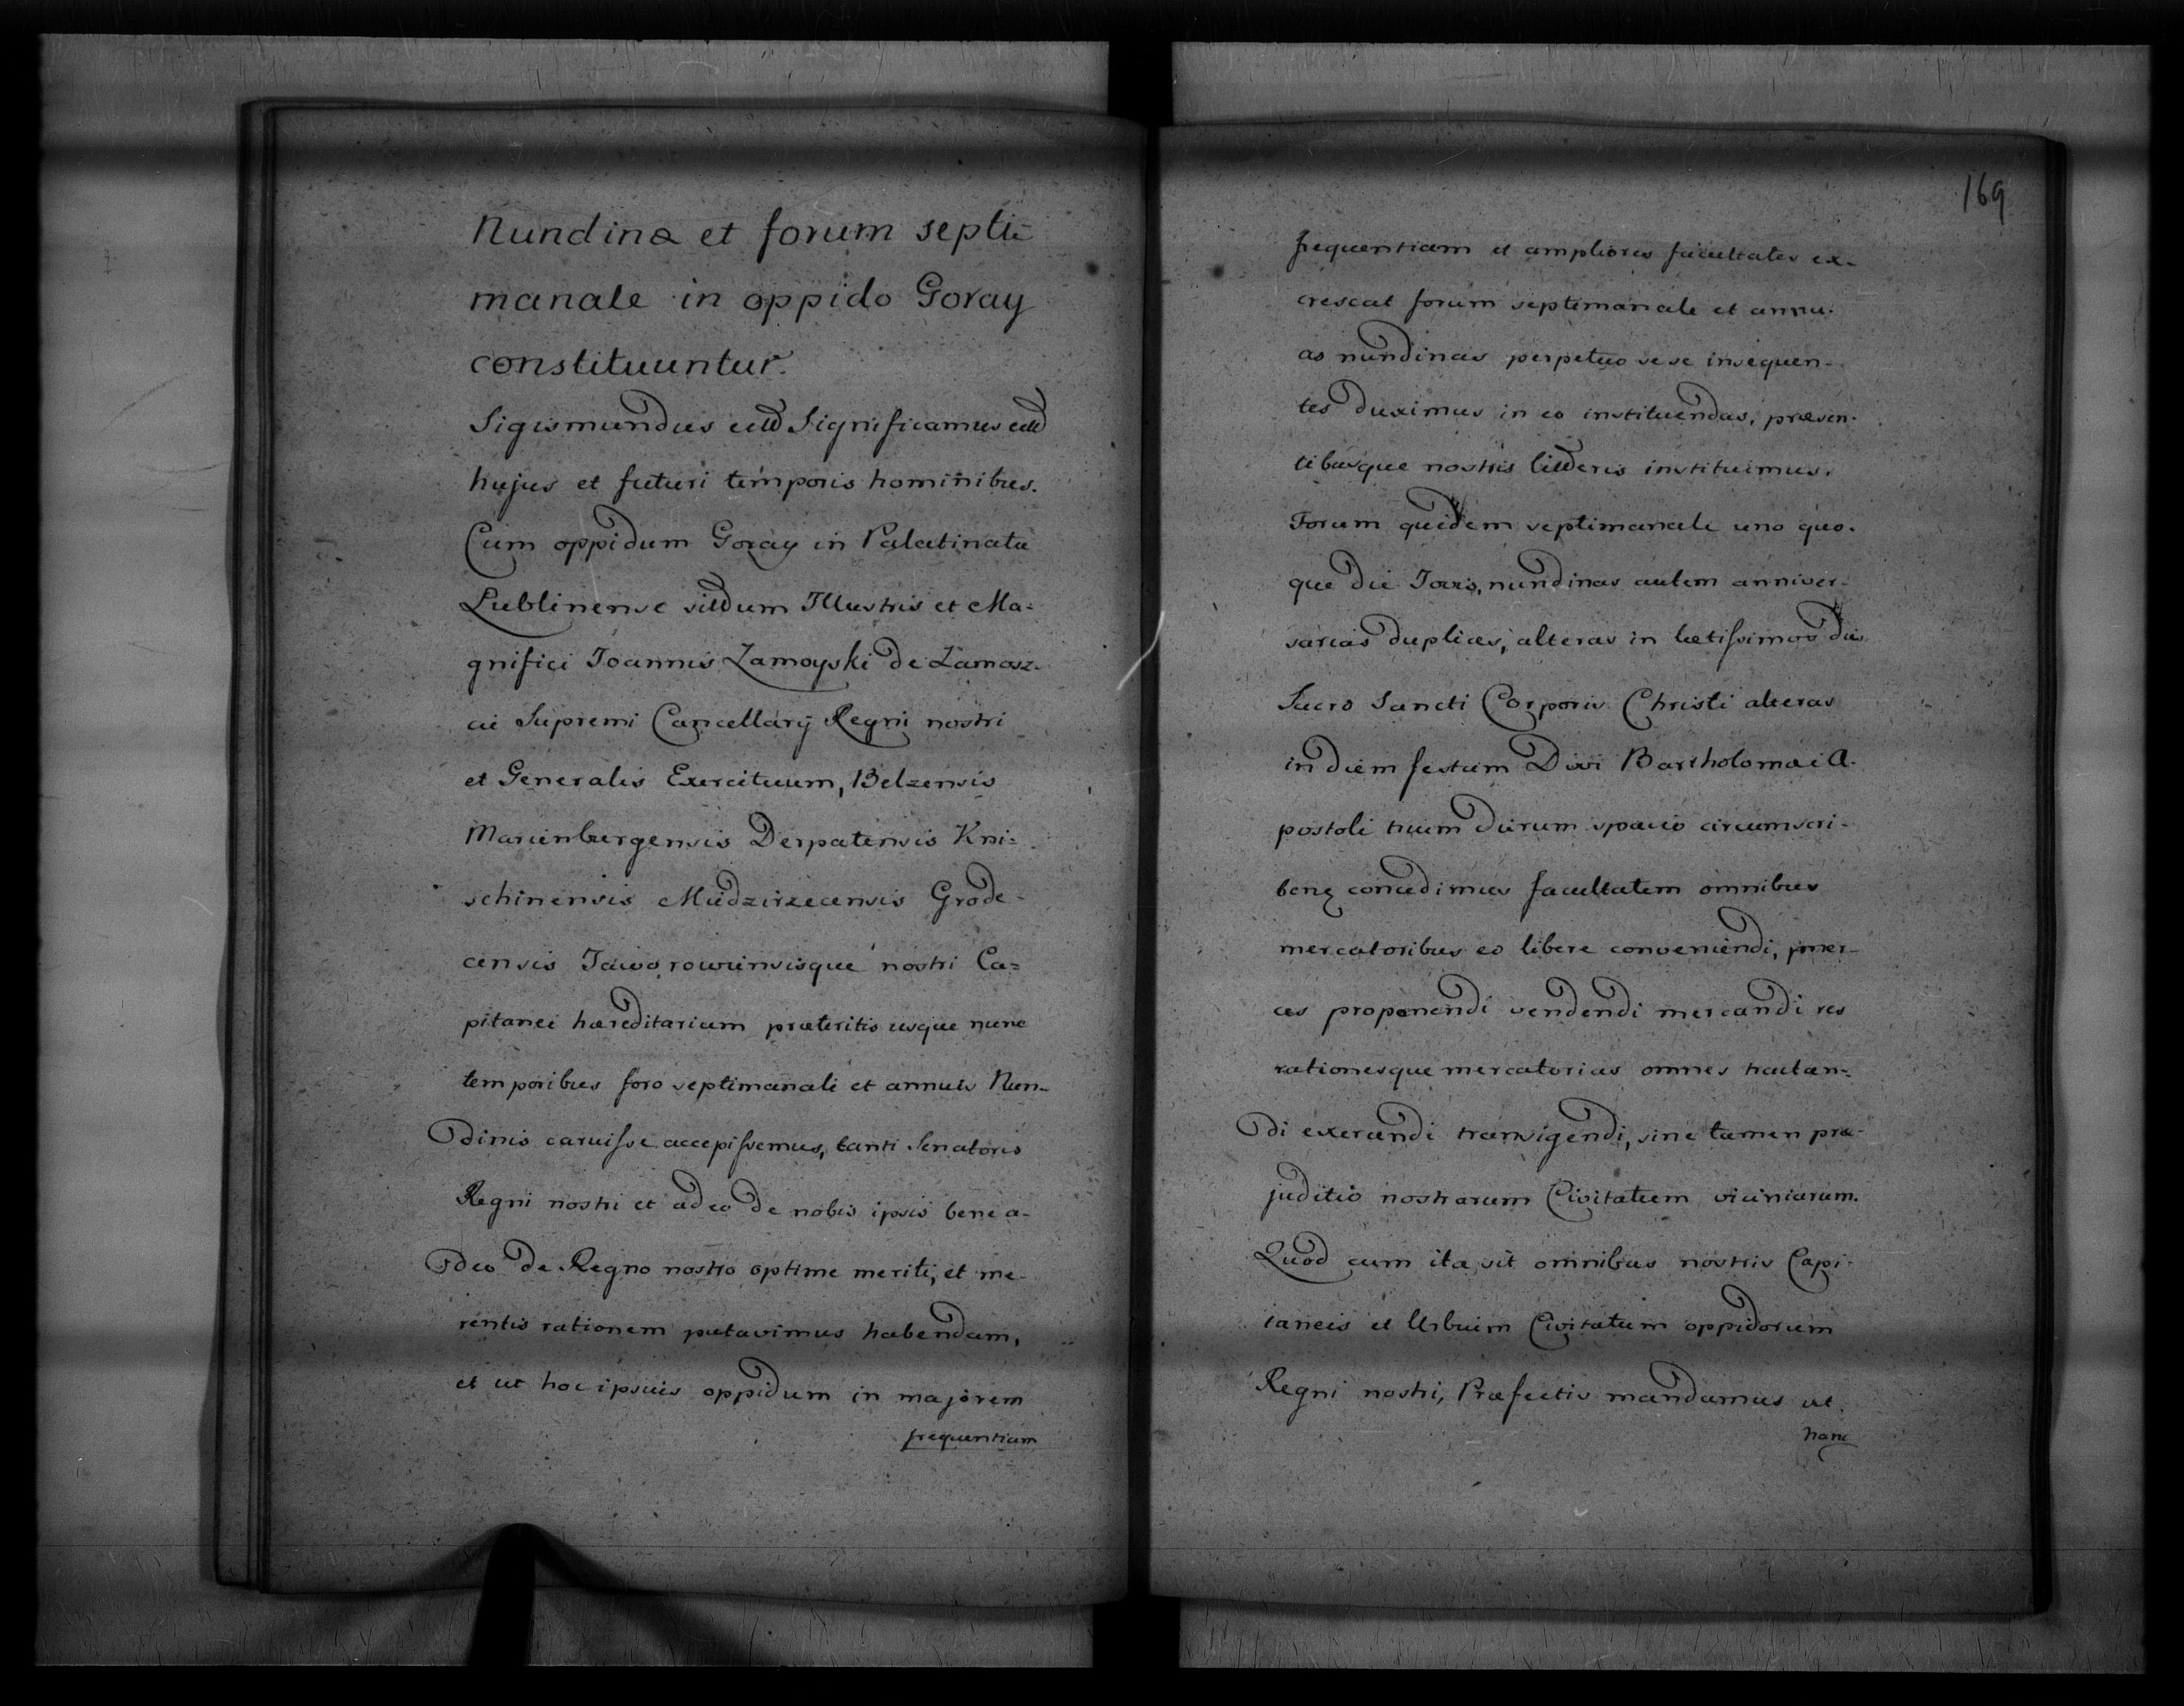 Nundinæ et forum septi-
manale in oppido Goray
constituuntur.
Sigismundus ettd Significamus ettd
hujus et futuri temporis hominibus.
Cum oppidum Goray in Palatinatu
Lublinense sittdum Illustris et Ma=
gnifici Joannis Zamoyski de Zamosz-
cie Supremi Cancellarij Regni nostri
et Generalis Exercituum, Belzensis
Marienburgensis Derpatensis Kni=
schinensis Miedzirzecensis Grode-
censis Jaworowiensisque nostri Ca=
pitanei hæreditarium præteritis usque nunc
temporibus foro septimanali et annuis Nun-
dinis caruisse accepissemus, tanti Senatoris
Regni nostri et adeo de nobis ipsis bene a-
deo de Regno nostro optime meriti, et me-
rentis rationem putavimus habendam,
et ut hoc ipsius oppidum in majorem
frequentiam
169
frequentiam et ampliores facultates ex-
crescat forum septimanale et annu-
as nundinas perpetuo sese insequen-
tes duximus in eo instituendas, præsen-
tibusque nostris littderis instituimus.
Forum quidem septimanale uno quo-
que die Jovis, nundinas autem anniver-
sarias duplices, alteras in lætissimos dies
Sacro Sancti Corporis Christi alteras
in diem festum Divi Bartholomæi A-
postoli trium dierum spacio circumscri-
benz concedimus facultatem omnibus
mercatoribus eo libere conveniendi, mer-
ces proponendi vendendi mercandi res
rationesque mercatorias omnes tractan=
di exercendi transigendi, sine tamen præ-
juditio nostrarum Civitatum viciniarum.
Quod cum ita sit omnibus nostris Capi-
taneis et Urbium Civitatum oppidorum
Regni nostri, Præfectis mandamus ut
hanc